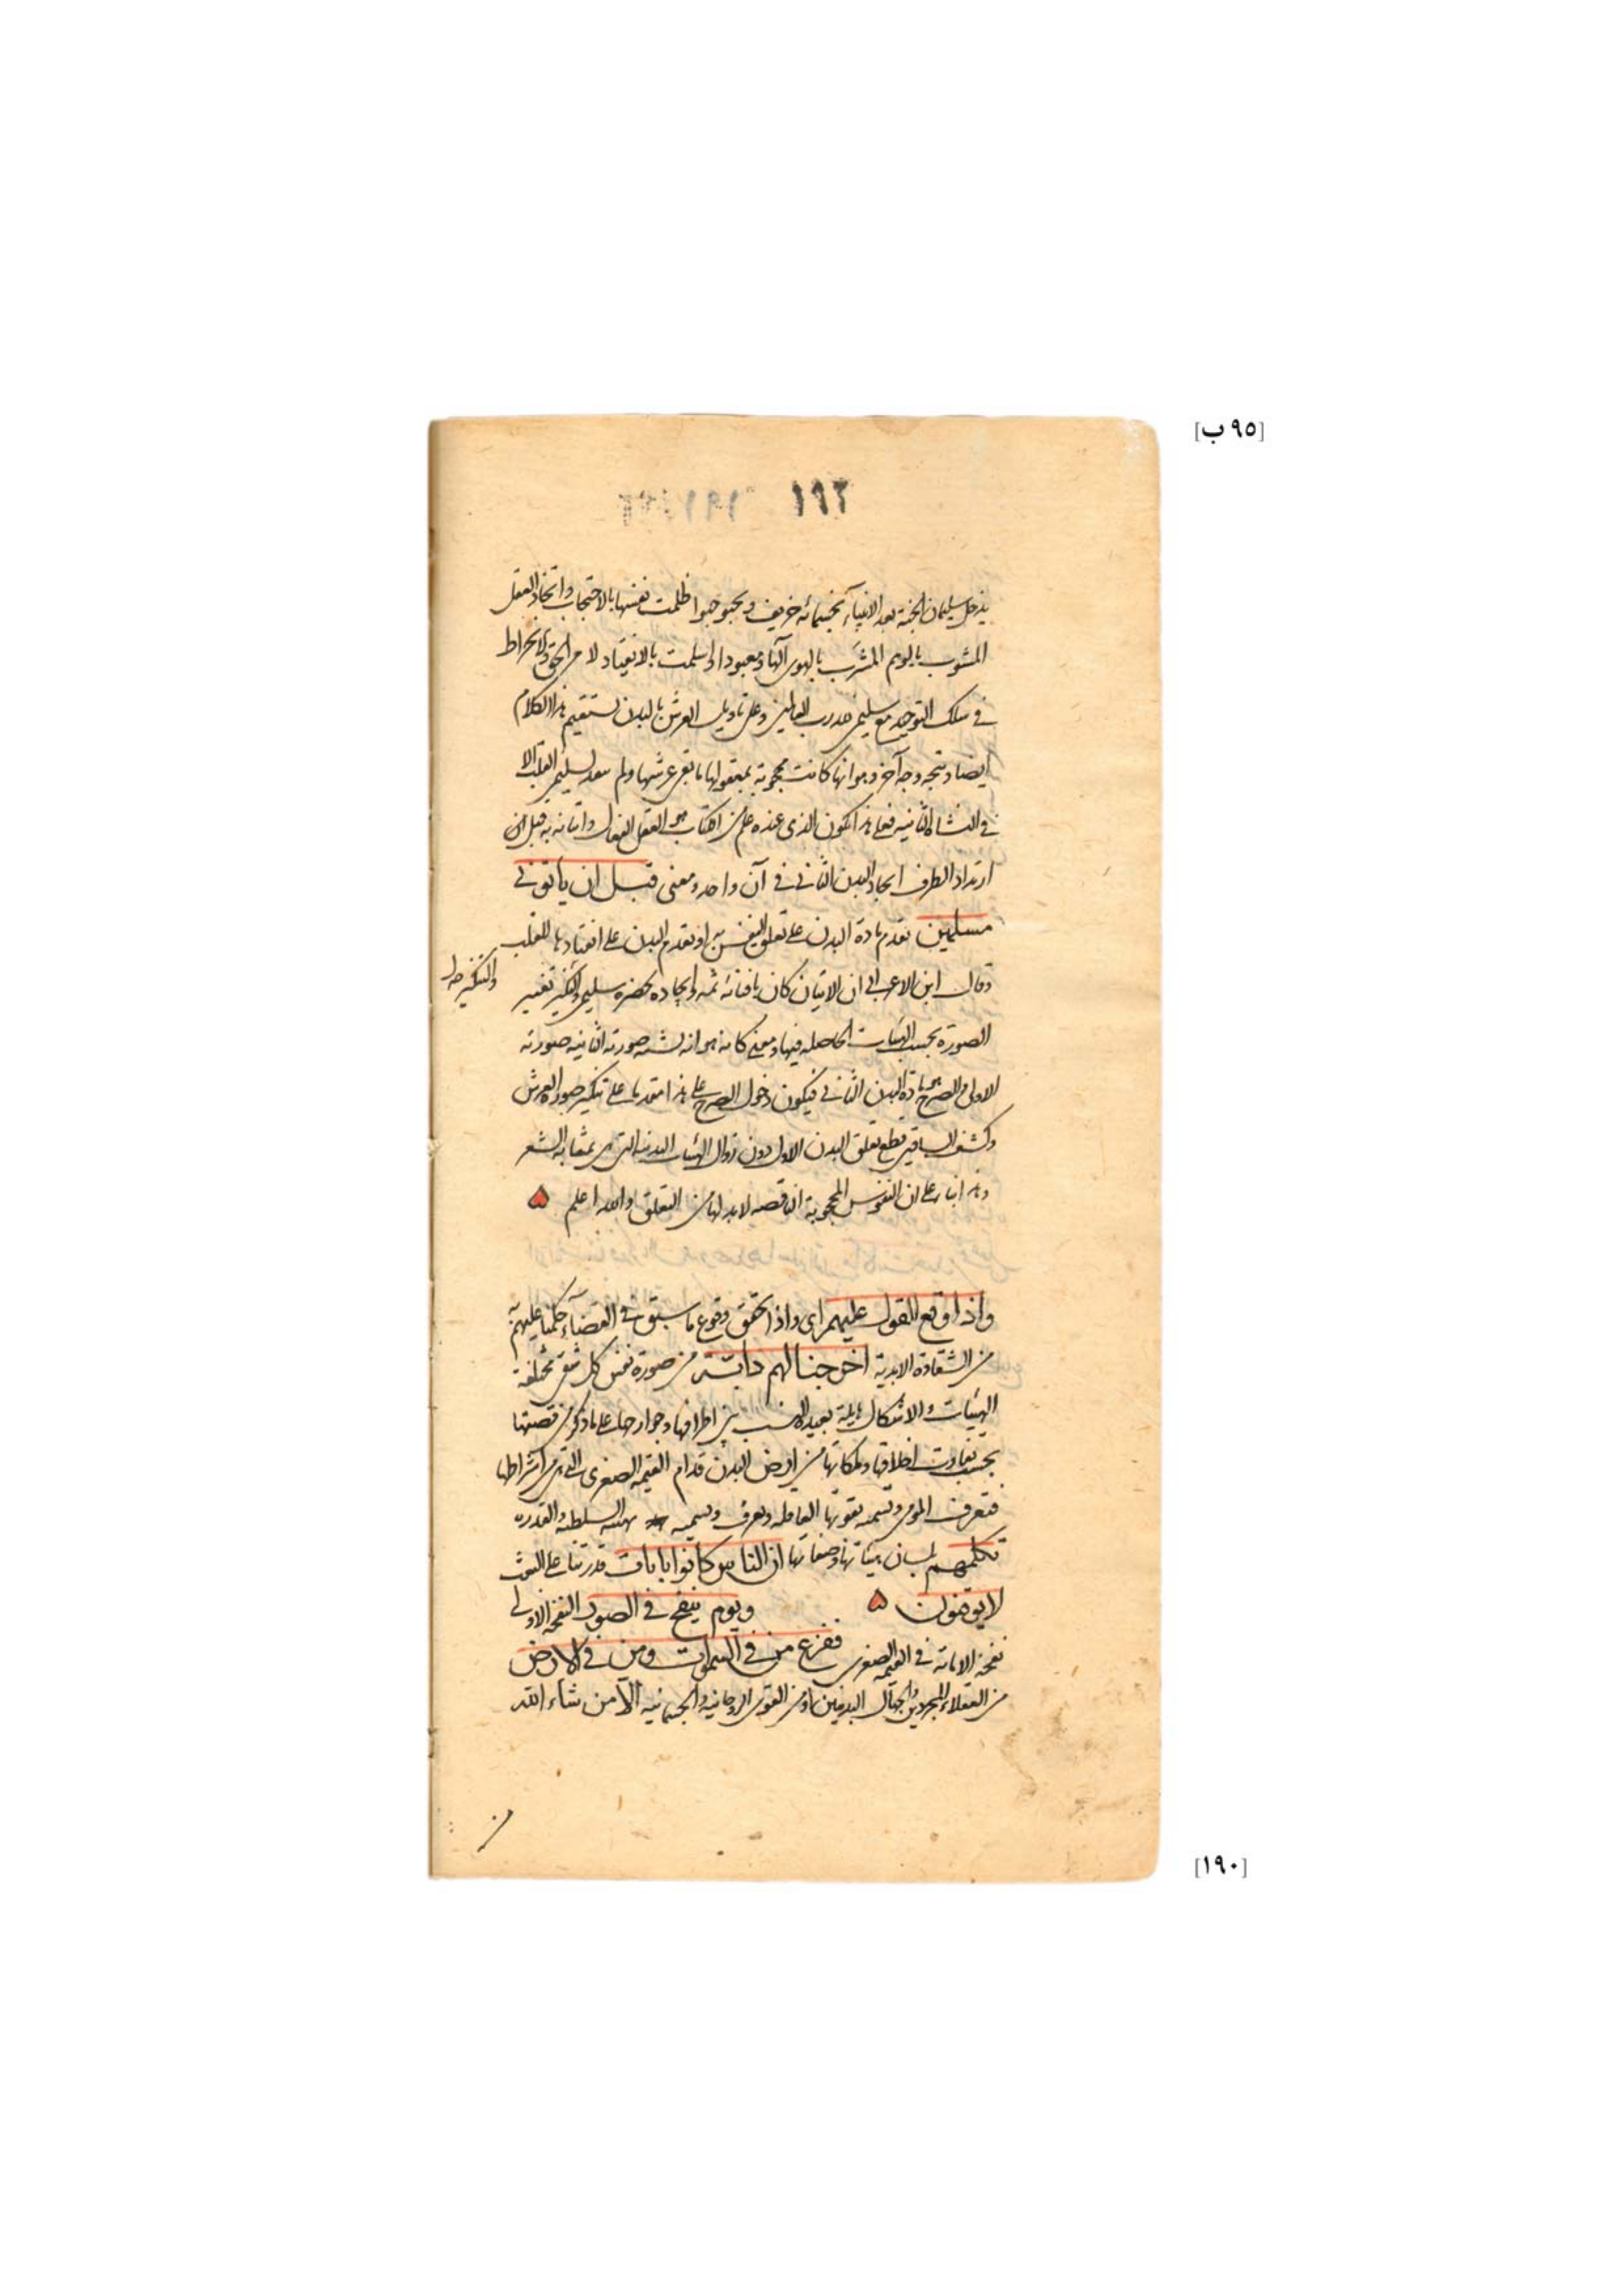 [٩٥ ب]
١٩٢
يدخل سليمان الجنة بعد الانبياء بخمسمائة خريف ويحبو حبوا ظلمت نفسها بالاحتجاب واتخاذ العقل
المشوب بالوهم المشرب بالهوى آلها ومعبودا واسلمت بالانقياد لامر الحق والانخراط
في سلك التوحيد مع سليمن لله رب العالمين وعلى تاويل العرش بالبدن يستقيم هذا الكلام
ايضا ويتجه وجه آخر وهو انها كانت محجوبة بمعقولها ما بقى عرشها ولم سليمن القلب الا
في النشاة الثانية فعلى هذا يكون الذي عنده علم من الكتاب هو العقل الفعال واتيانه به قبل ان
ارتداد الطرف ايجاد البدن الثاني في آن واحد ومعنى قبل ان ياتوني
مسلمين تقدم مادة البدن على تعلق النفس به او تقدم البدن على انقيادها للقلب
وقال ابن الاعرابي ان الاتيان كان بافنائه ثمه وايجاده بحضرة سليمن والتنكير تغيير
والتنكير
الصورة بحسب الهيئات الحاصله فيها ومعنى كانه هو انه يشبه صورته الثانية صورته
الاولى والصرح مادة البدن الثاني فيكون دخول الصرح على هذا متقدما على تنكير صورة العرش
وكشف الساقين قطع تعلق البدن الاول دون زوال الهيئات البدنية التي هي بمثابة الشعر
وهذا بناء على ان النفوس المحجوبة الناقصه لابد لها من التعلق والله اعلم
واذا وقع القول عليهم اى واذا تحقق وقوع ما سبق في القضاء حكمنا عليهم به
من الشقاوة الابدية اخرجنا لهم دابة من صورة نفس كل شقى مختلفة
الهيئات والاشكال هايلة بعيدة النسب بين اطرافها وجوارحها على ما ذكر من قصتها
بحسب تفاوت اخلاقها وملكاتها من ارض البدن قدام القيمة الصغرى التي هي من اشراطها
فتعرف المؤمن وتسميه بقوتها العاملة وتعرف وتسميه السلطنة والقدرة
تكلمهم بلسان هيئاتها وصفاتها ان الناس كانوا باياتنا قدرتنا على البعث
لا يوقنون ويوم ينفخ في الصور النفخة الاولى
نفخة الاماتة في القيمة الصغرى ففزع من في السموات ومن في الارض
من العقلاء المجردين والجهال البدنيين او من القوى الروحانية والجسمانية الا من شاء الله
[١٩٠]